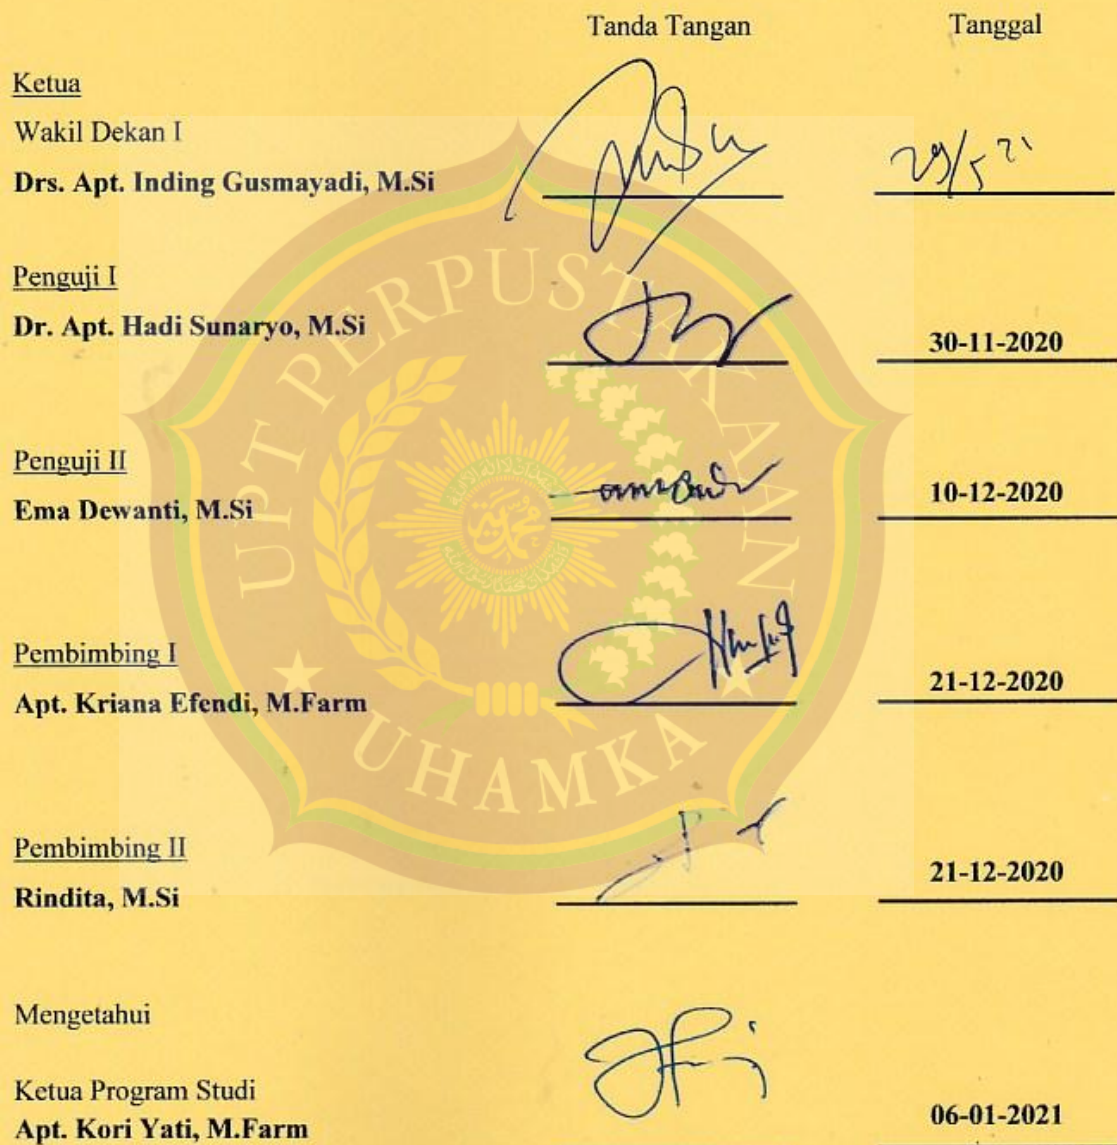 Tanda Tangan Tanggal
Ketua
Wakil Dekan I
Drs. Apt. Inding Gusmayadi, M.Si 29/5 21
Penguji I
Dr. Apt. Hadi Sunaryo, M.Si 30-11-2020
Penguji II
Ema Dewanti, M.Si 10-12-2020
Pembimbing I
Apt. Kriana Efendi, M.Farm 21-12-2020
Pembimbing II
Rindita, M.Si 21-12-2020
Mengetahui
Ketua Program Studi
Apt. Kori Yati, M.Farm 06-01-2021
UPT PERPUSTAKAAN
UHAMKA